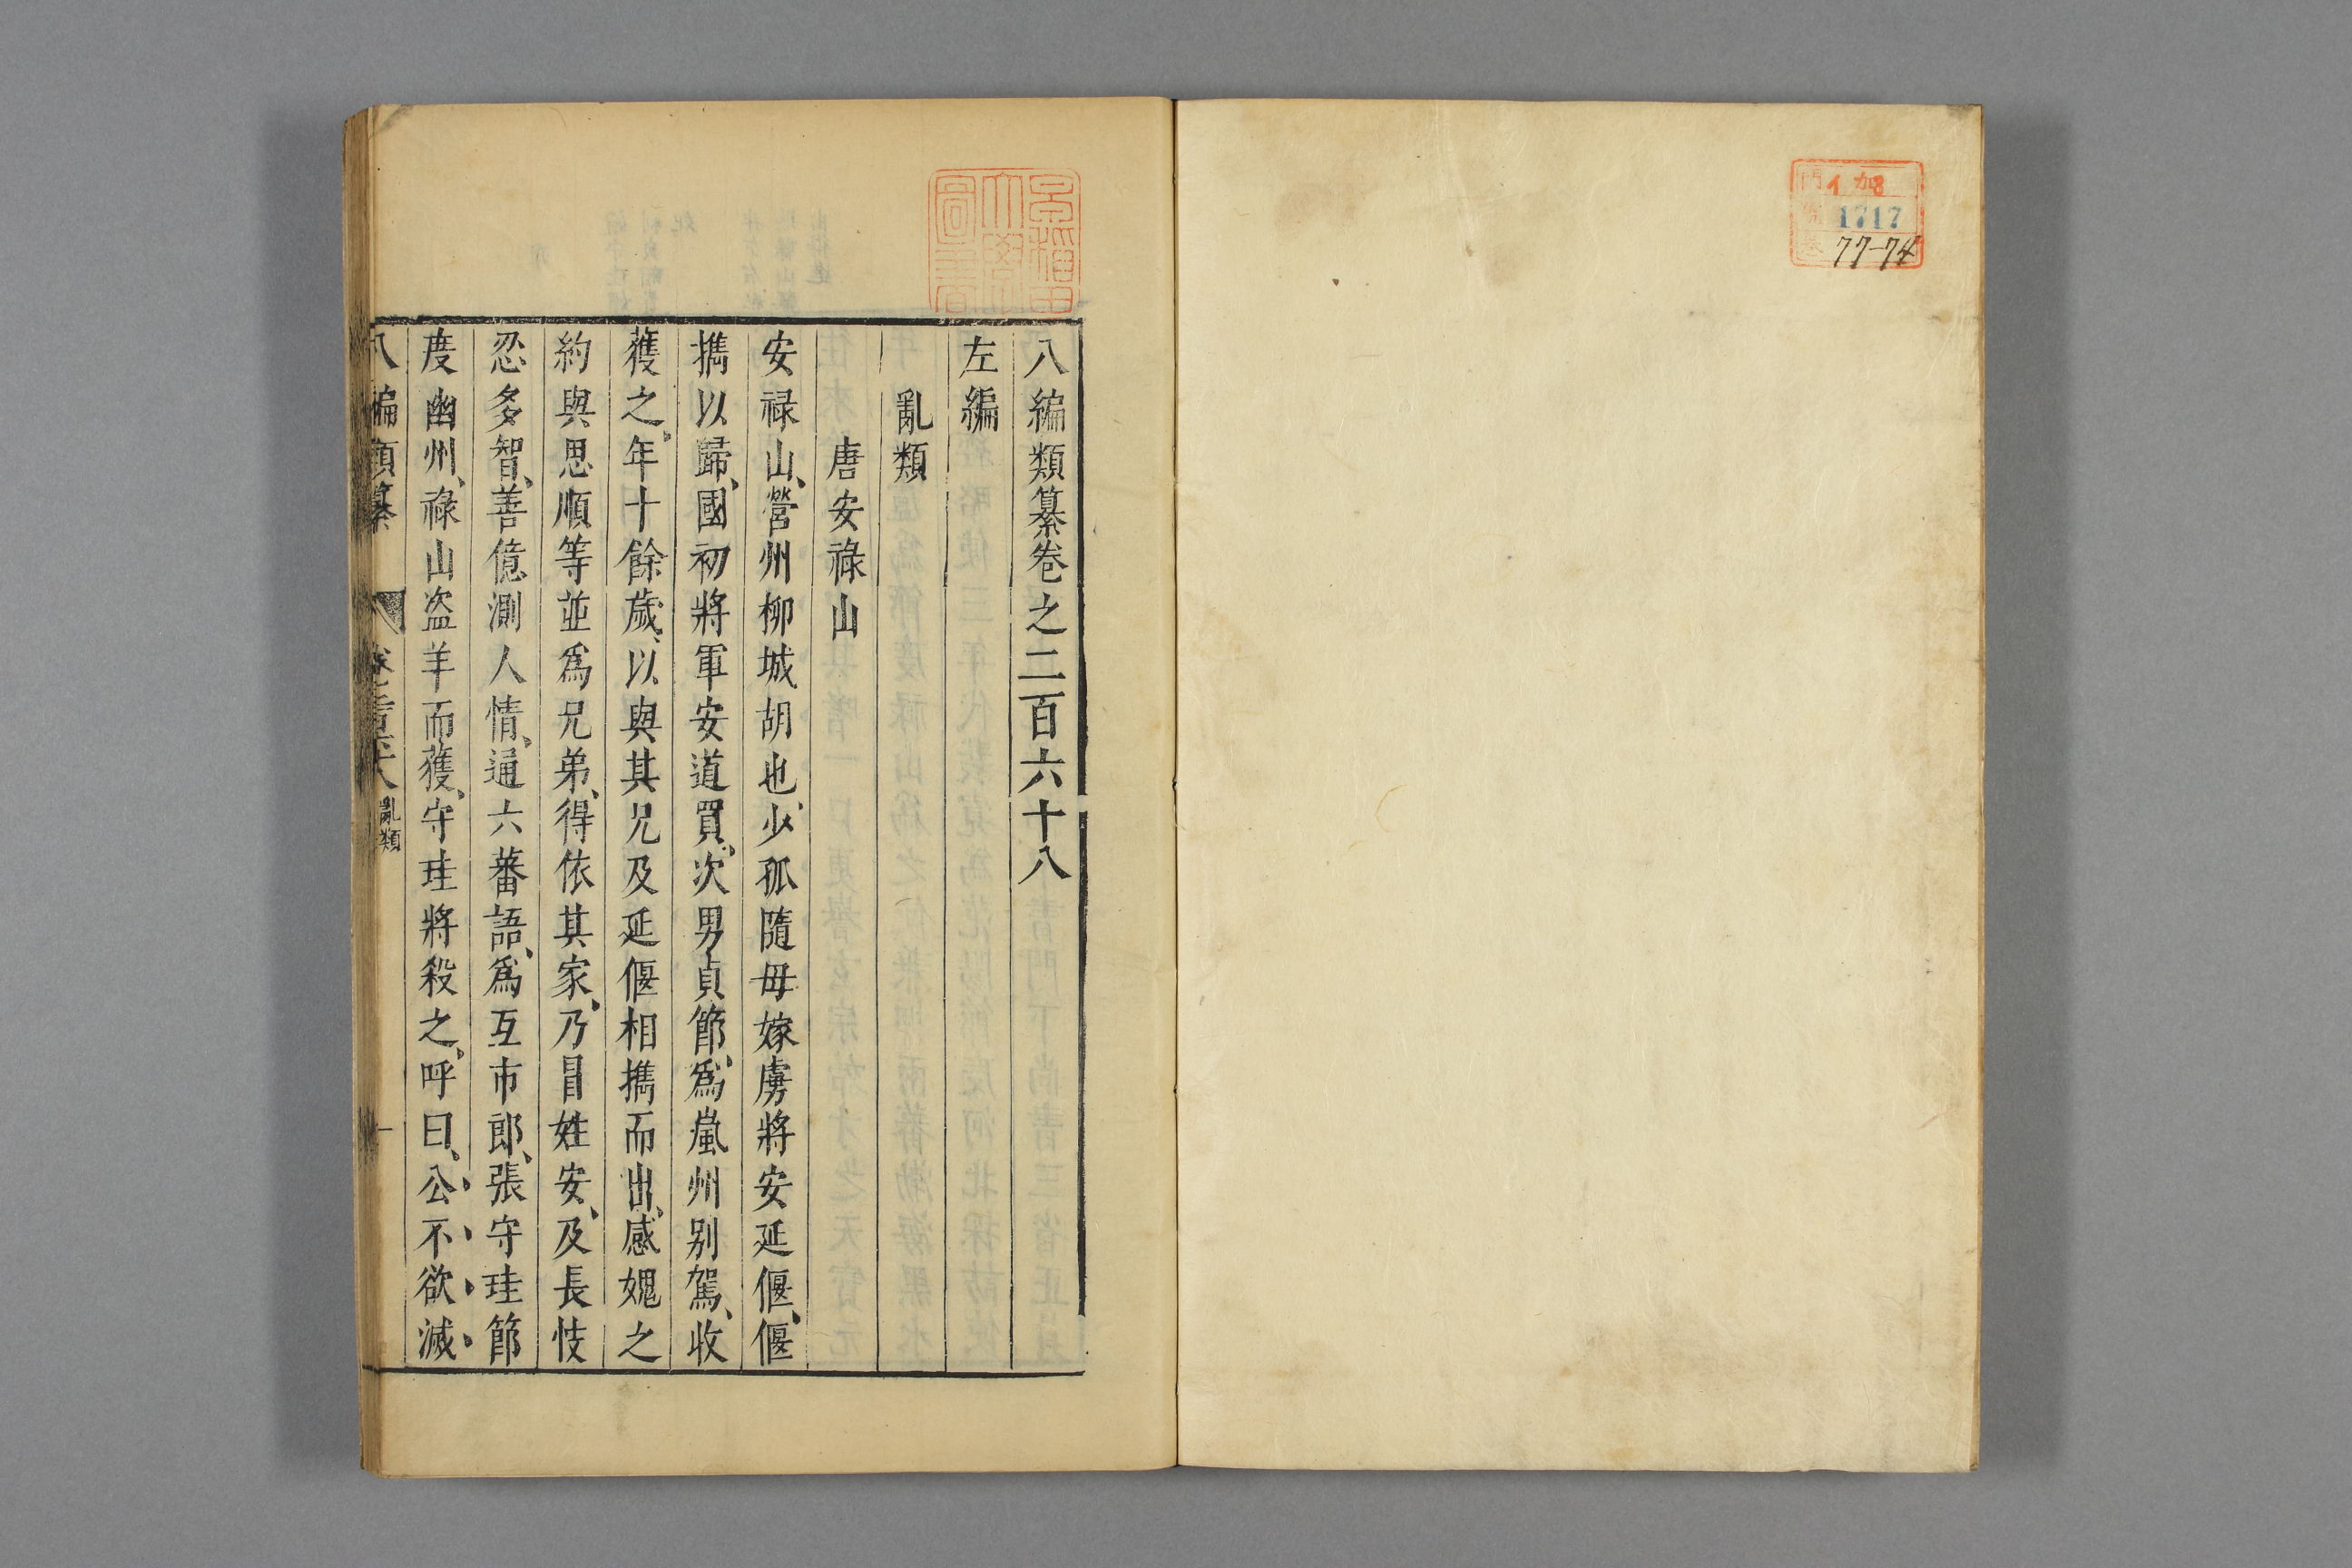 1717
77-74
八編類纂卷之二百六十八
左編
亂類
唐安祿山
安祿山、營州柳城胡也、少孤隨毋嫁虜將安延偃、偃
攜以歸、國初將軍安道買、次男貞節、爲嵐州别駕、收
獲之、年十餘歲、以與其兄及延偃相攜而出、感媿之
約與思順等並爲兄弟、得依其家、乃冒姓安、及長忮
忍多智、善億測人情、通六蕃語、爲互市郎、張守珪節
度幽州、祿山盗羊而獲、守珪將殺之、呼曰、公不欲滅
八編類纂
亂類
一